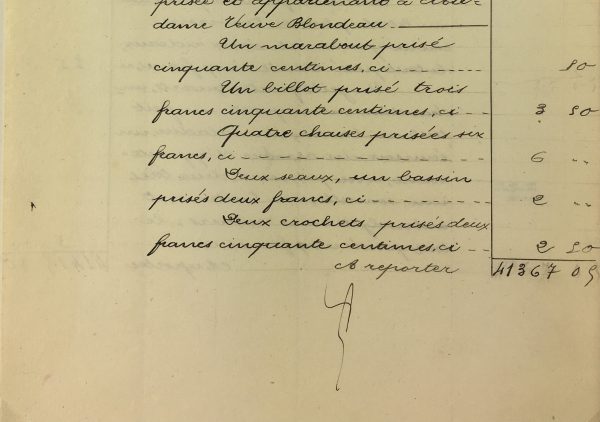 prisée et appartenant à Ma-
dame Veuve Blondeau
Un marabout prisé
cinquante centimes, ci 50
Un billot prisé trois
francs cinquante centimes, ci 3 50
Quatre chaises prisées six
francs, ci 6 "
Deux seaux, un bassin
prisés deux francs, ci 2 "
Deux crochets prisés deux
francs cinquante centimes, ci 2 50
A reporter 41367 05